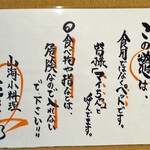 この鯉は
食用ではなくペットです。
皆様「アイドル」と
呼んでます。
◎食べ物や指などは、
危険なので入れない
で、下さい!!
山海小料理